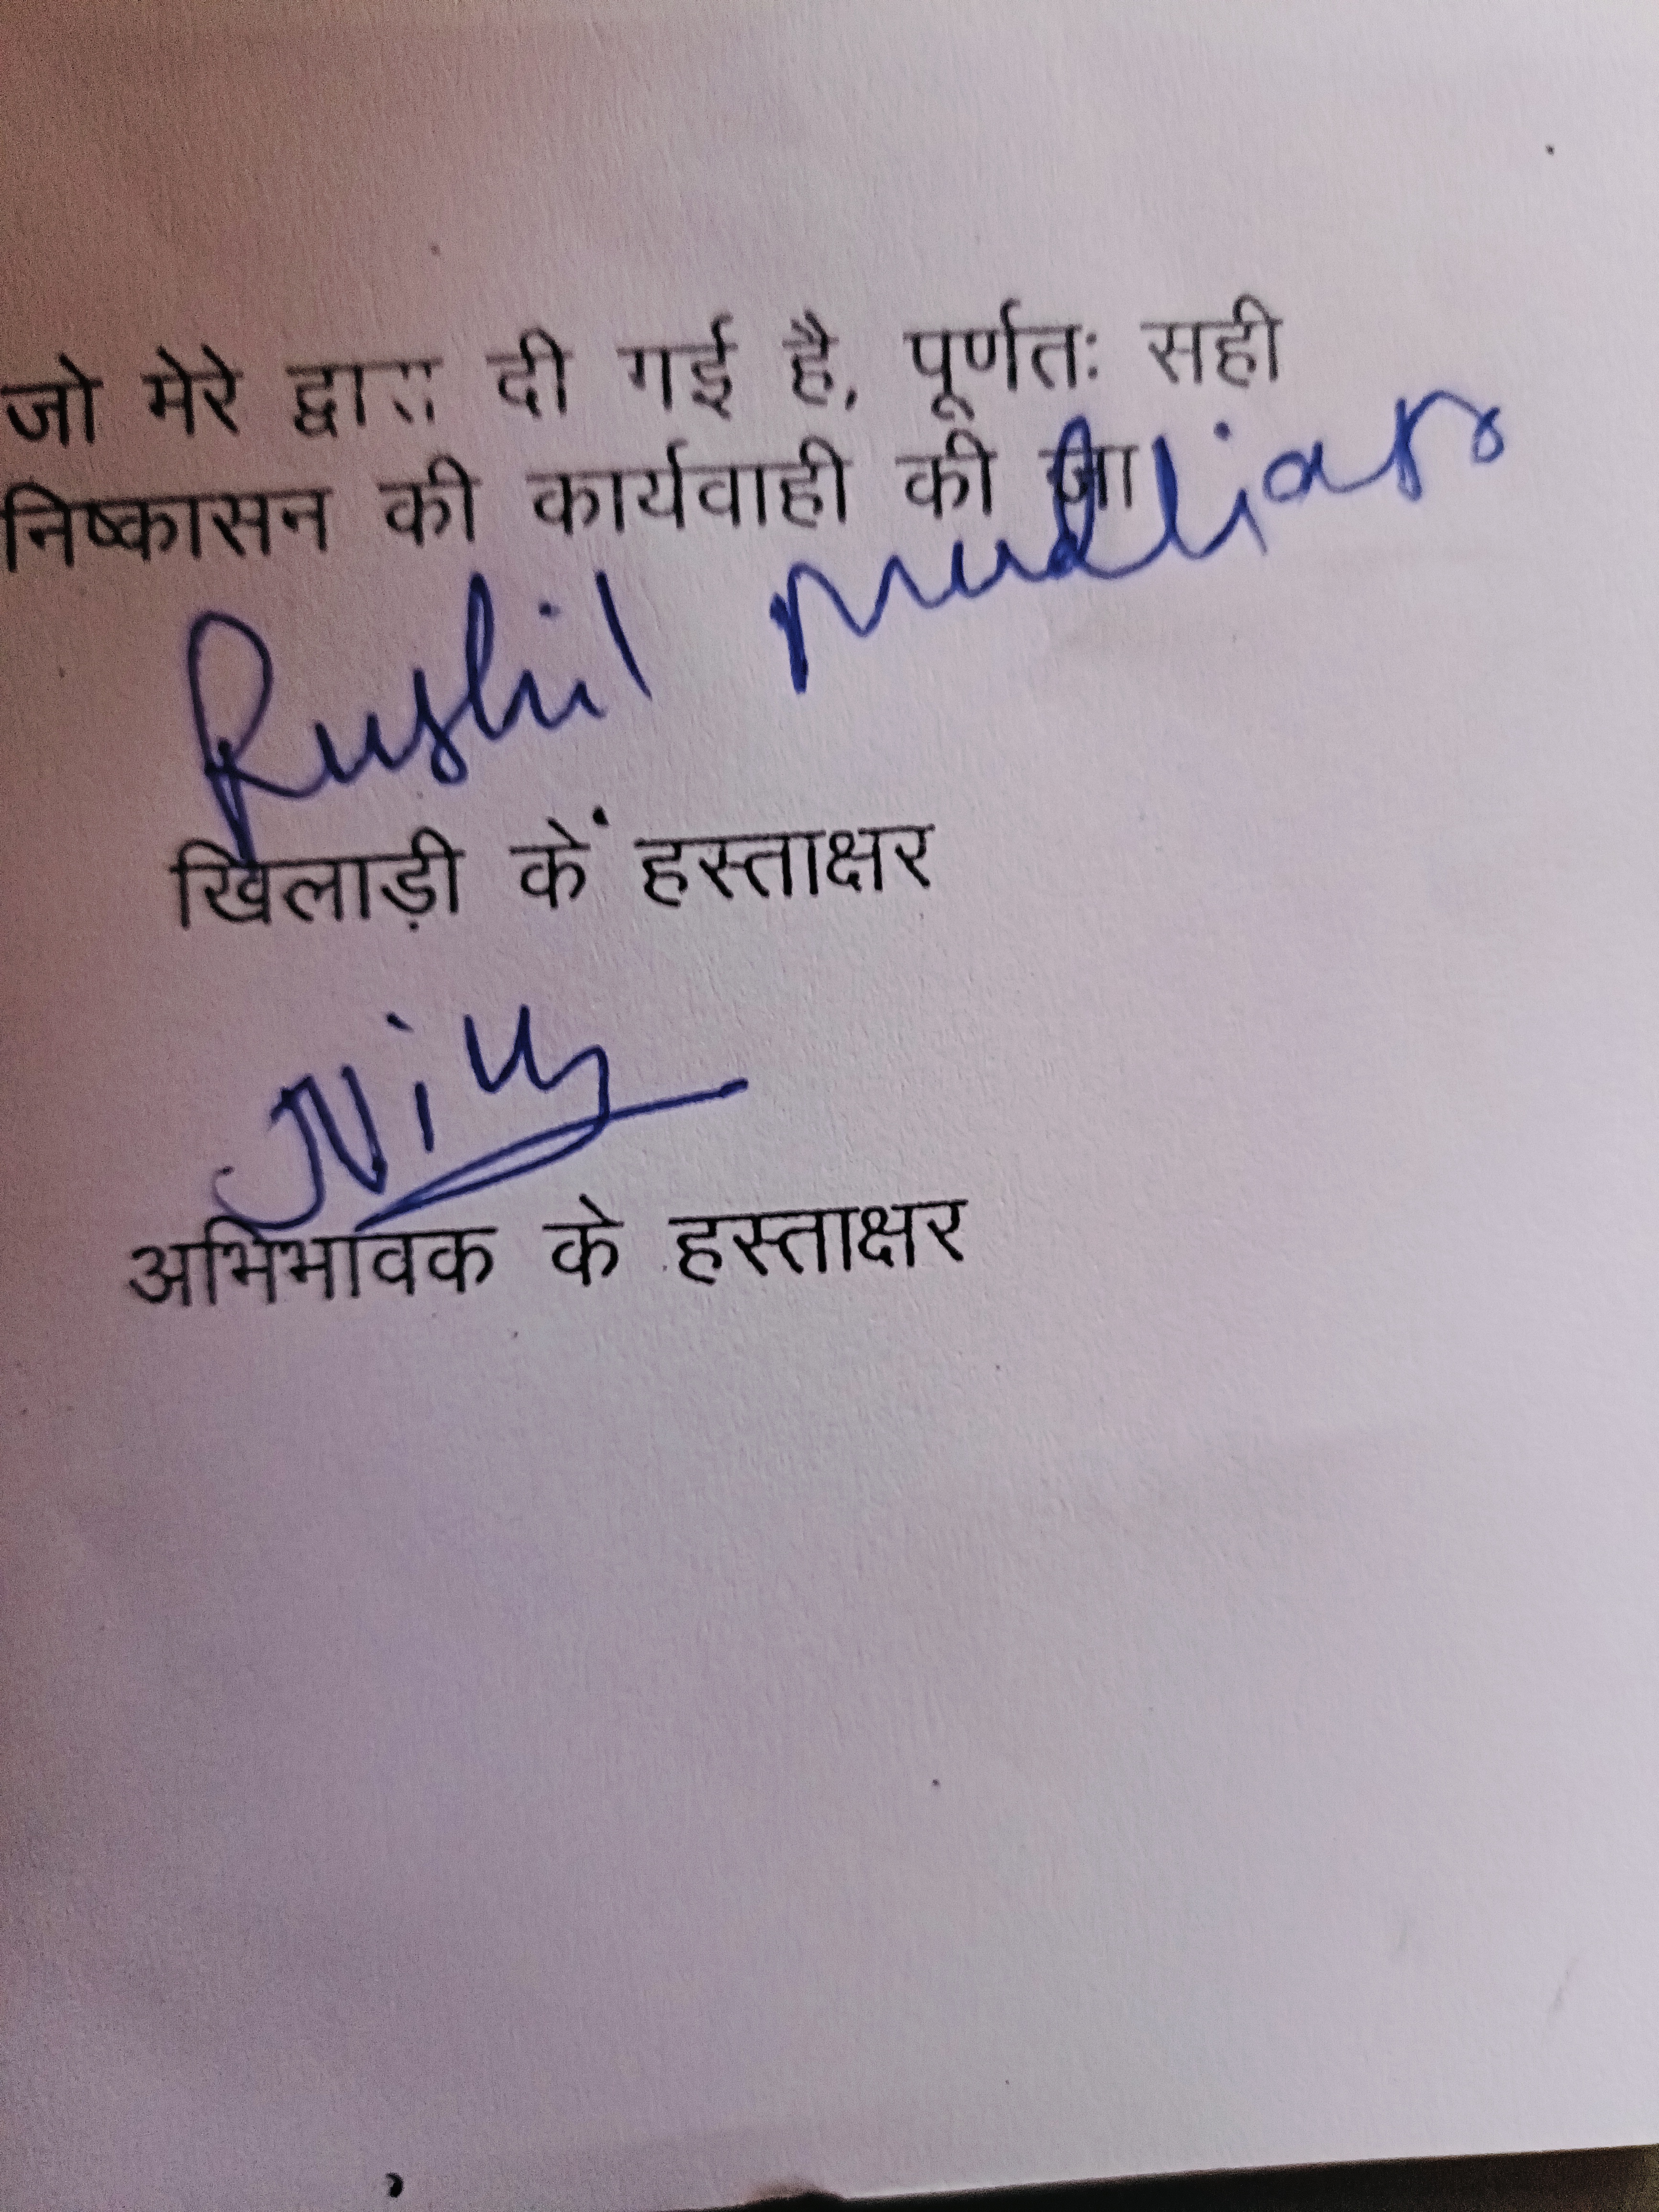 जो मेरे द्वारा दी गई है, पूर्णतः सही
निष्कासन की कार्यवाही की जा
Rushil Mudliar
खिलाड़ी के हस्ताक्षर
अभिभावक के हस्ताक्षर